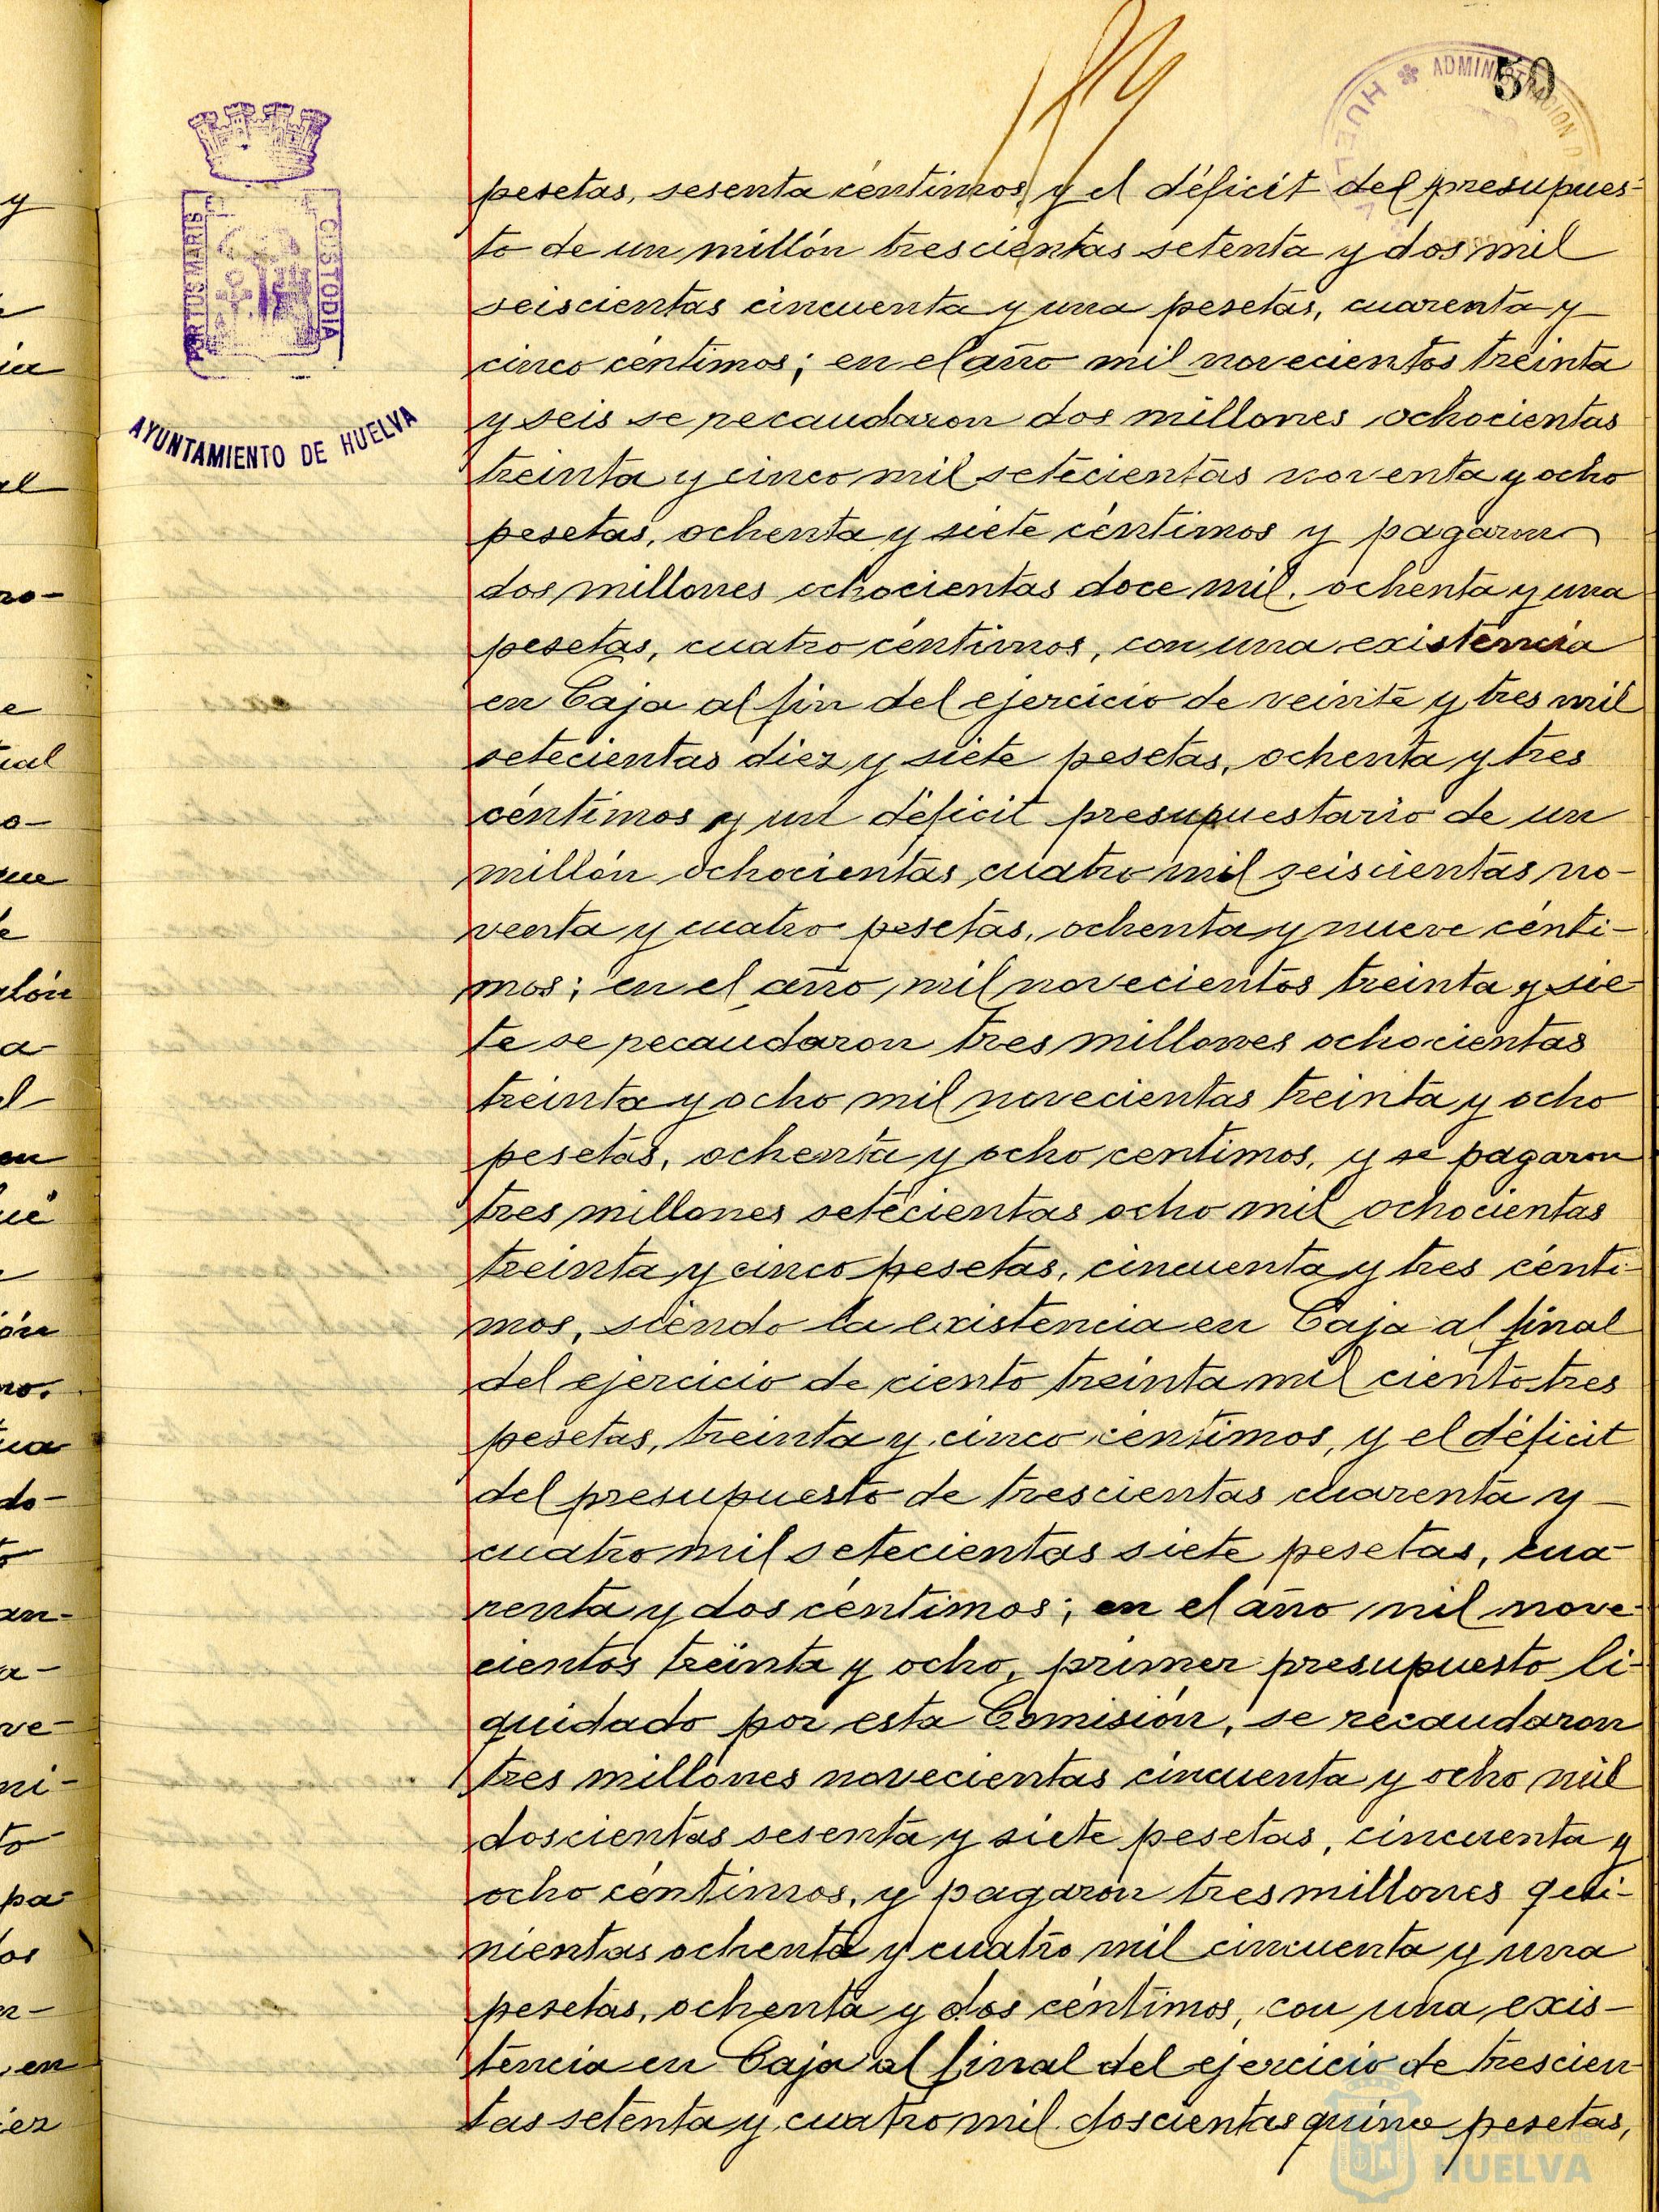 50
ADMINISTRACION D
HUELVA
PORTUS MARIS
CUSTODIA
AYUNTAMIENTO DE HUELVA
pesetas, sesenta céntimos y el déficit del presupues-
to de un millón trescientas setenta y dos mil
seiscientas cincuenta y una pesetas, cuarenta y
cinco céntimos; en el año mil novecientos treinta
y seis se recaudaron dos millones ochocientas
treinta y cinco mil setecientas noventa y ocho
pesetas, ochenta y siete céntimos y pagaron
dos millones ochocientas doce mil, ochenta y una
pesetas, cuatro céntimos, con una existencia
en Caja al fin del ejercicio de veinte y tres mil
setecientas diez y siete pesetas, ochenta y tres
céntimos y un déficit presupuestario de un
millón ochocientas cuatro mil seiscientas no-
venta y cuatro pesetas, ochenta y nueve cénti-
mos; en el año mil novecientos treinta y sie-
te se recaudaron tres millones ochocientas
treinta y ocho mil novecientas treinta y ocho
pesetas, ochenta y ocho centimos, y se pagaron
tres millones setecientas ocho mil ochocientas
treinta y cinco pesetas, cincuenta y tres cénti-
mos, siendo la existencia en Caja al final
del ejercicio de ciento treinta mil ciento tres
pesetas, treinta y cinco céntimos, y el déficit
del presupuesto de trescientas cuarenta y
cuatro mil setecientas siete pesetas, cua-
renta y dos céntimos; en el año mil nove-
cientos treinta y ocho, primer presupuesto li-
quidado por esta Comisión, se recaudaron
tres millones novecientas cincuenta y ocho mil
doscientas sesenta y siete pesetas, cincuenta y
ocho céntimos, y pagaron tres millones qui-
nientas ochenta y cuatro mil cincuenta y una
pesetas, ochenta y dos céntimos, con una exis-
tencia en Caja al final del ejercicio de trescien-
tas setenta y cuatro mil doscientas quince pesetas,
HUELVA